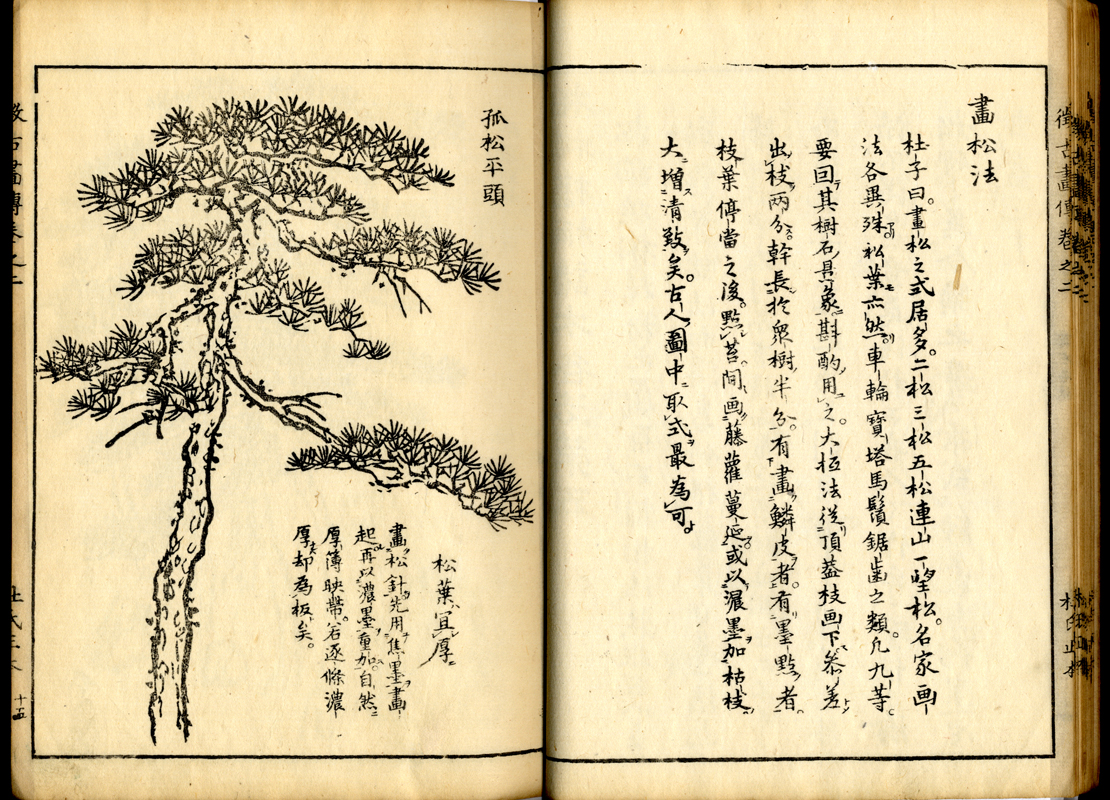 畫松法
杜子曰畫松之式居多二松三松五松連山一望松名家画
法各異殊松葉亦然車輪寶塔馬鬛鋸歯之類凡九等
要回其樹石具象斟酌用之大抵法従頂葢枝画下参差
出枝両分幹長於衆樹半分有畫鱗皮者有墨點者
枝葉停當之後點苔間画藤蘿蔓延或以濃墨加枯枝
大増清致矣古人圖中取式最為可
孤松平頭
松葉宜厚
畫松針先用焦墨畫
起再以濃墨重加自然
厚簿映帶若逐條濃
厚却為板矣
十五